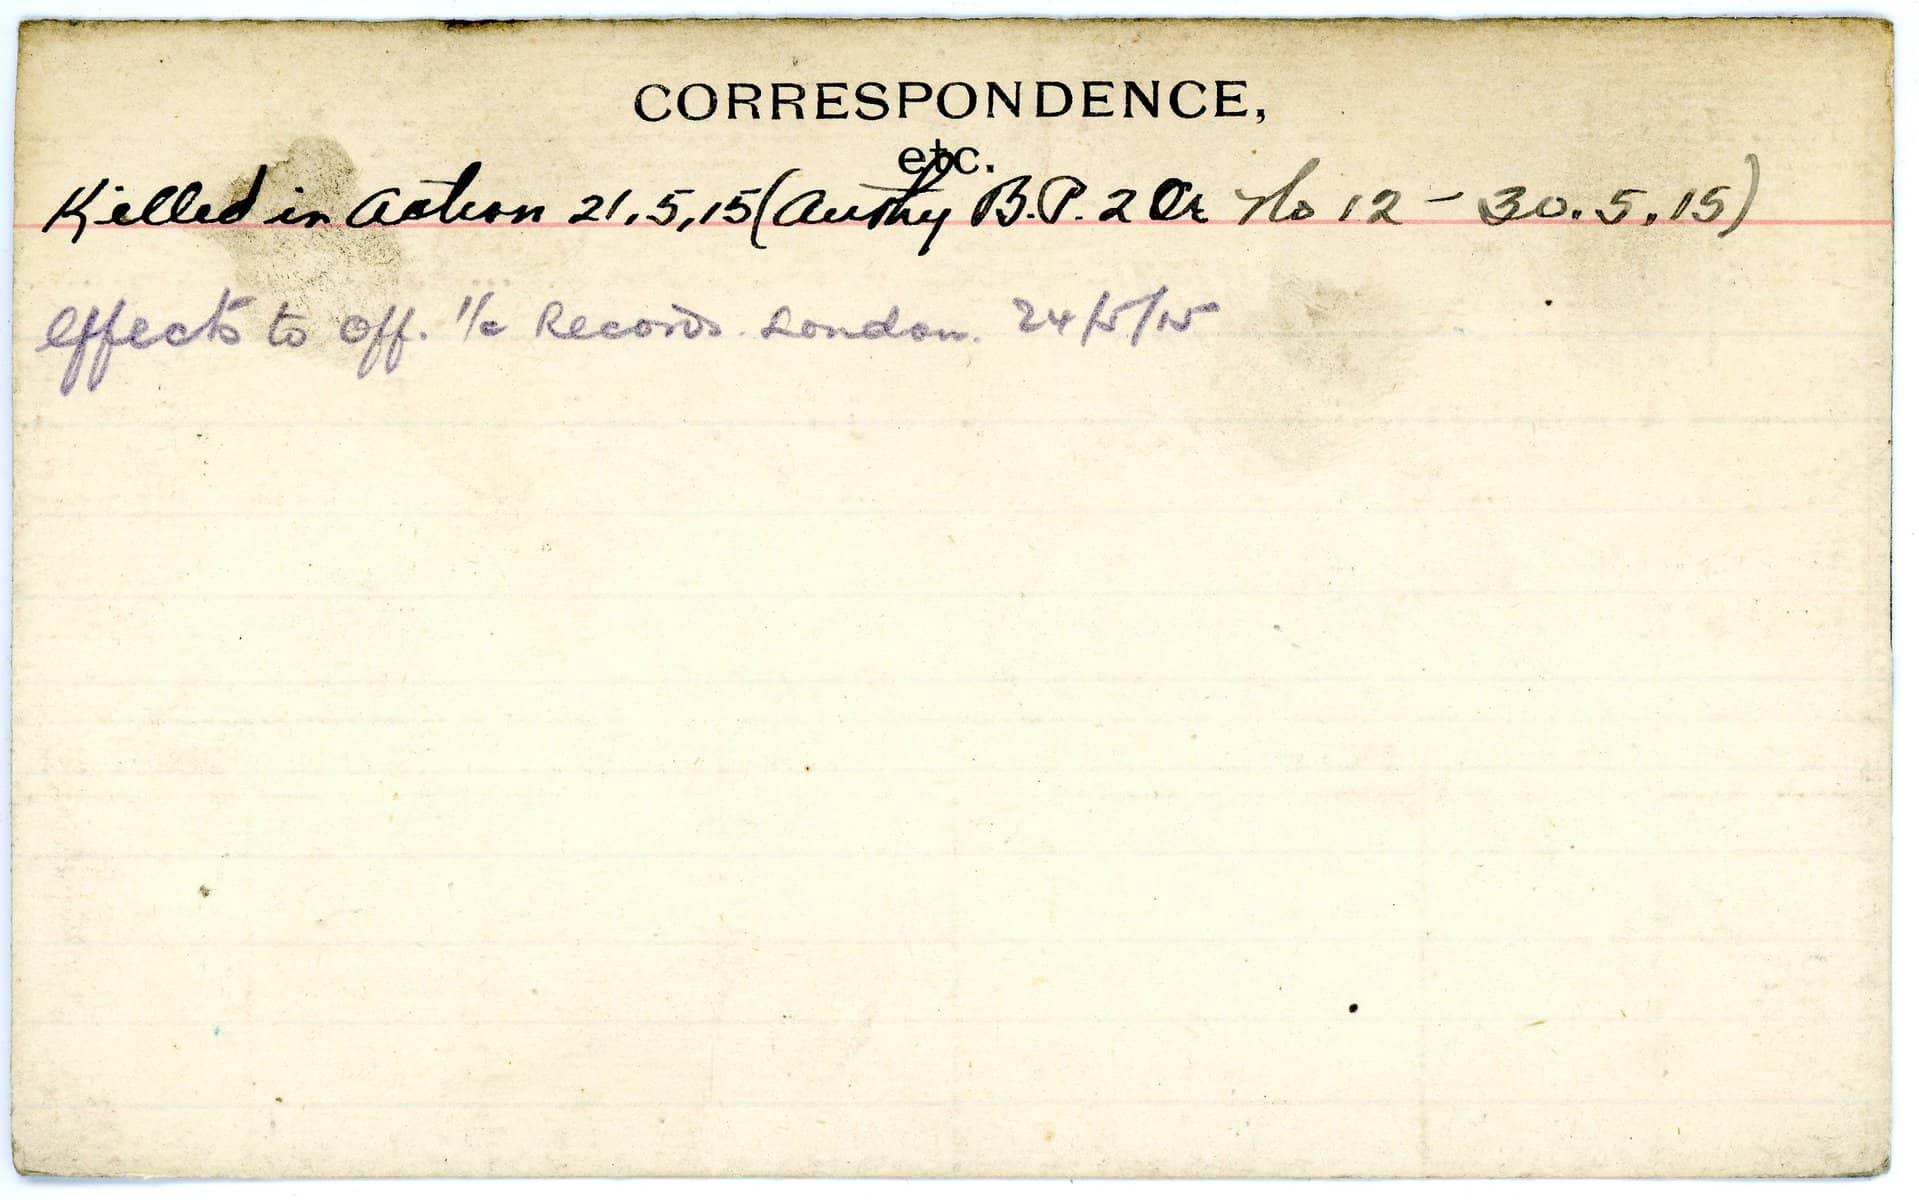 CORRESPONDENCE,
etc.
Killed in Action 21.5.15 (Authy B.P. 2 Or No 12 - 30.5.15)
effects to Off. I/c Records. London. 24/5/15